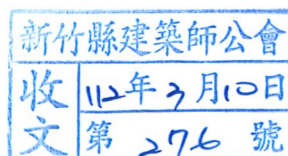 新竹縣建築師公會
收文
112年3月10日
第276號